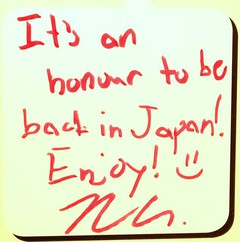 It's an
honour to be
back in Japan!
Enjoy! :)